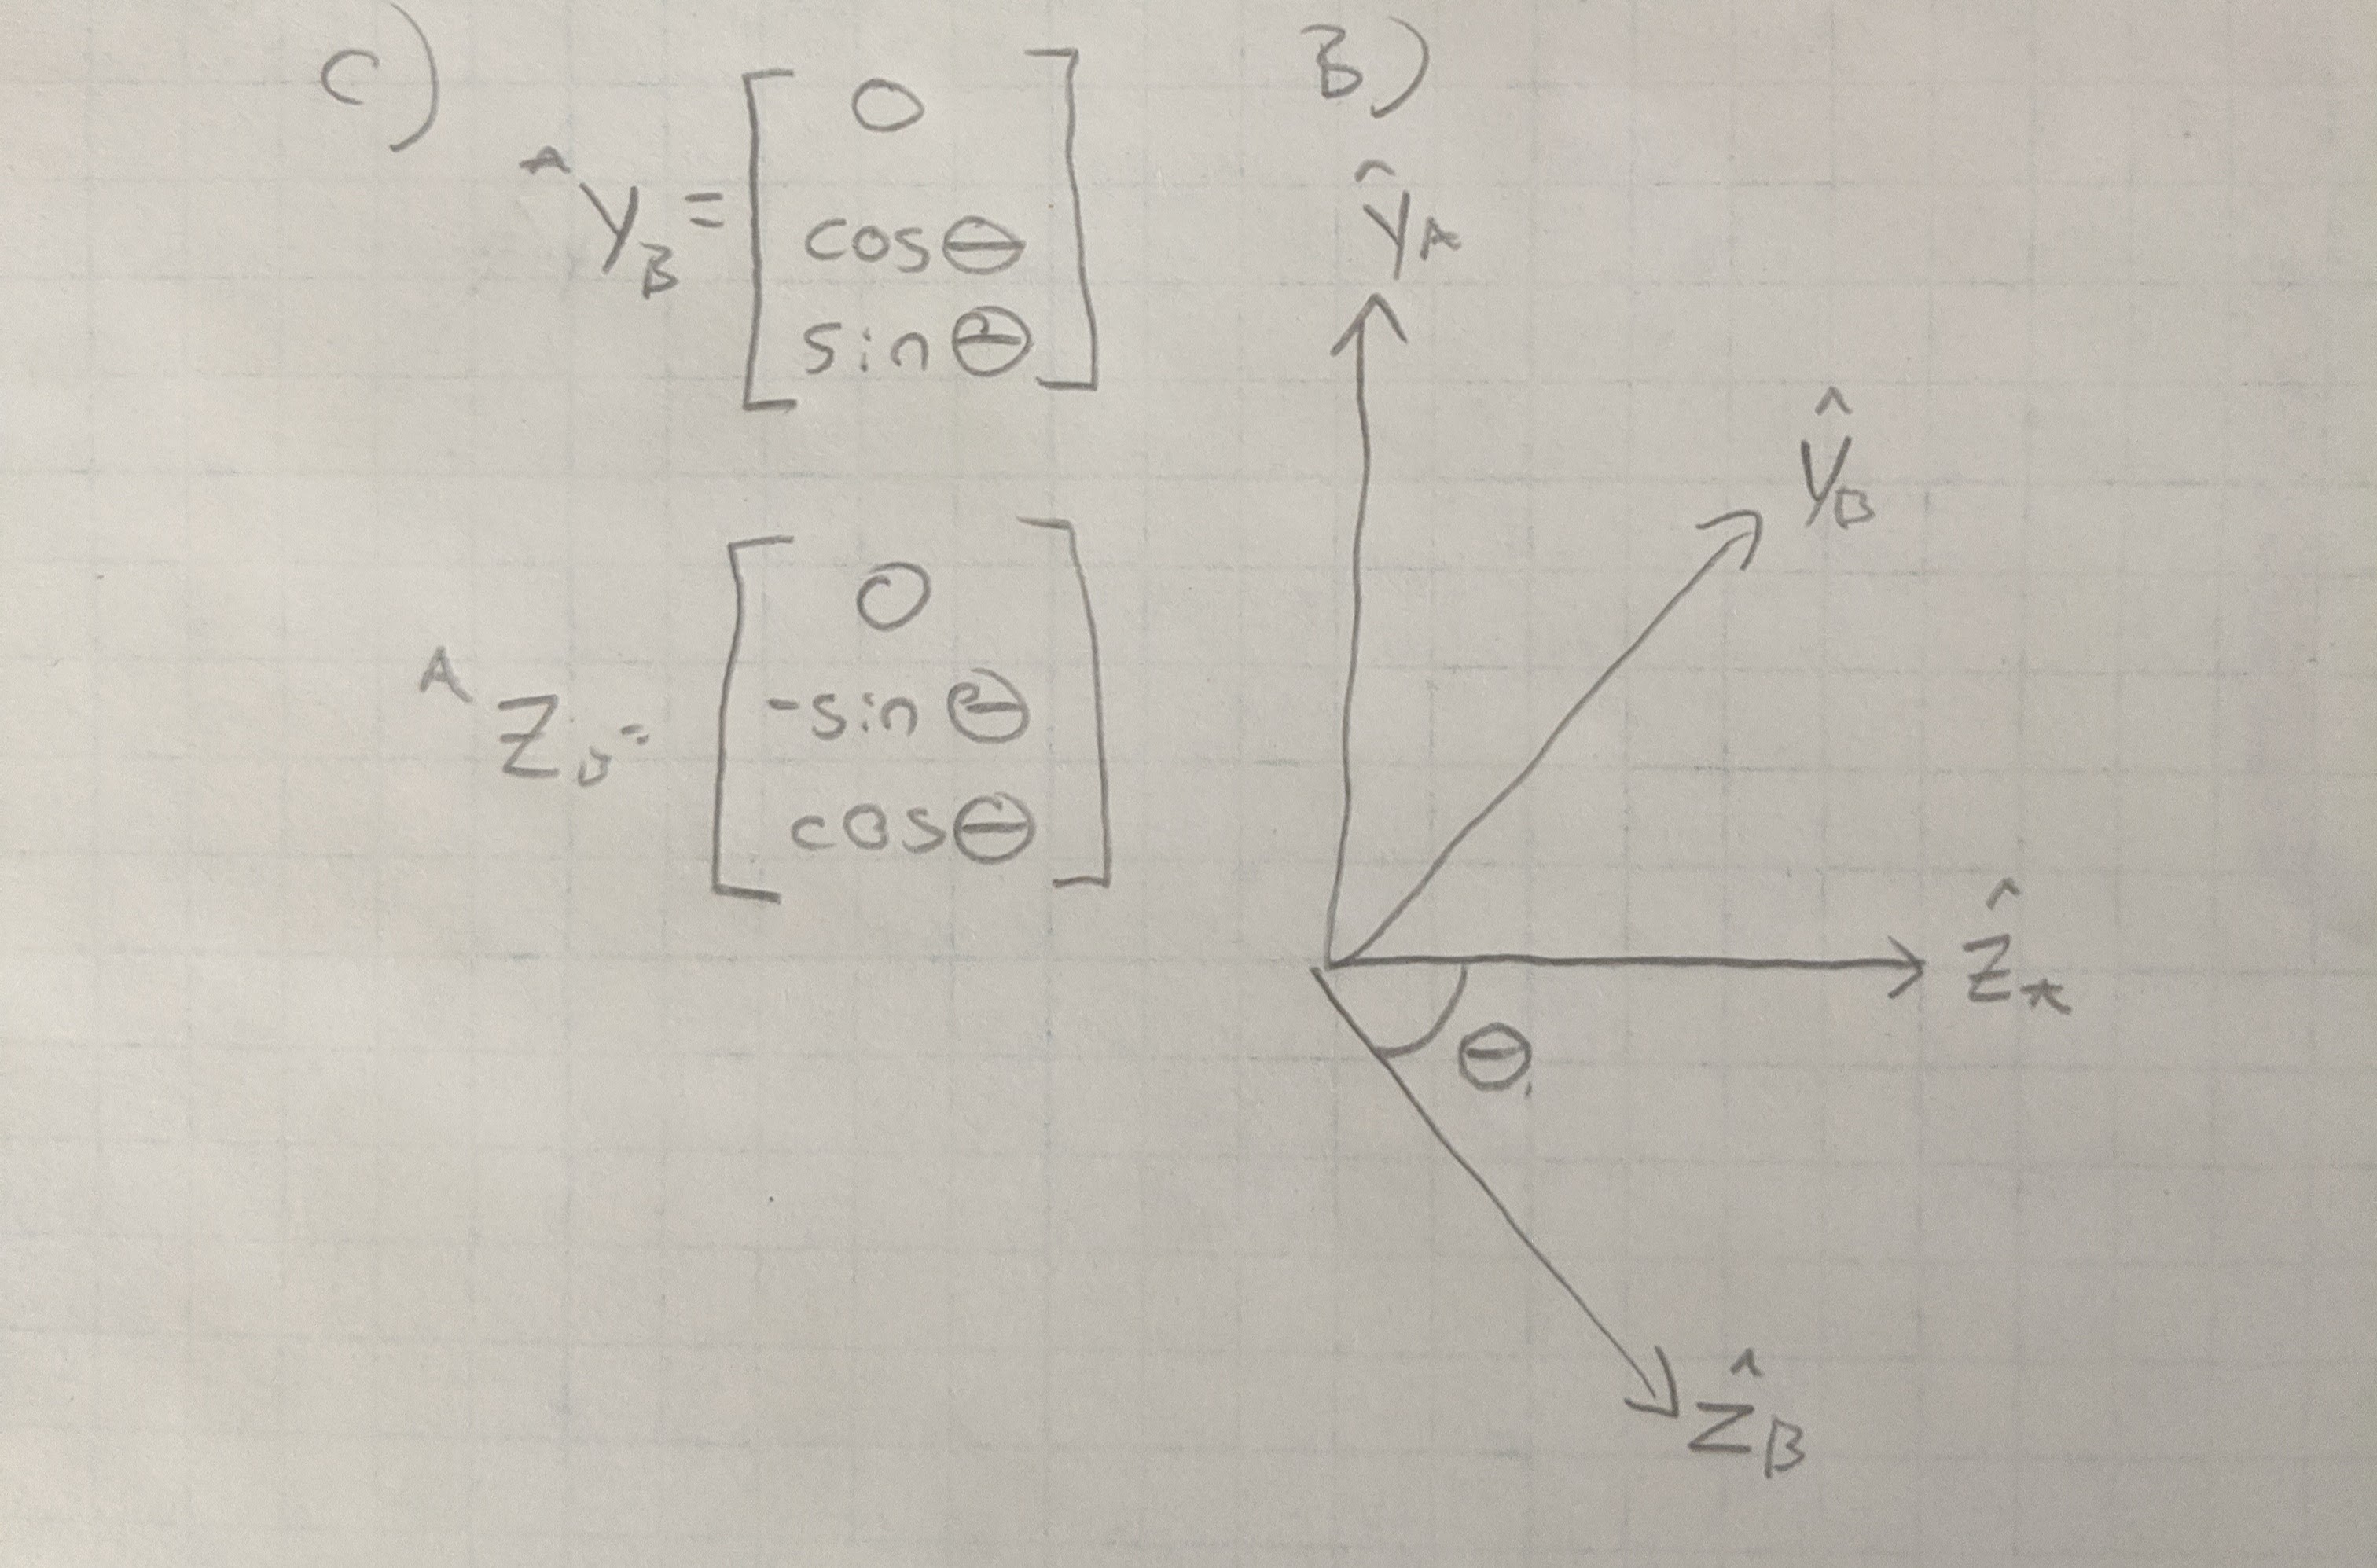 C)
ᴬY_B = [ 0
cosθ
sinθ ]
ᴬZ_B = [ 0
-sinθ
cosθ ]
B)
ŷ_A
ŷ_B
ẑ_A
θ
ẑ_B